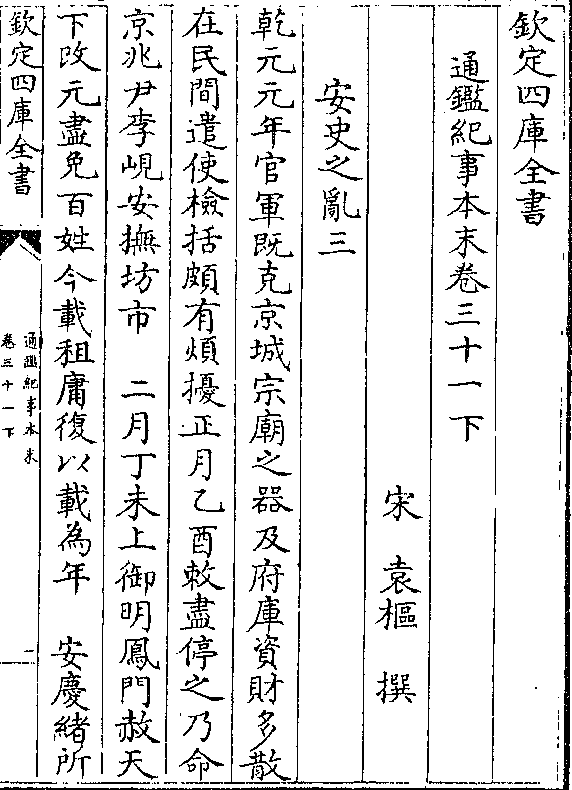 欽定四庫全書
通鑑紀事本末卷三十一下
宋 袁樞 撰
安史之亂三
乾元元年官軍既克京城宗廟之器及府庫資財多散
在民間遣使檢括頗有煩擾正月乙酉敕盡停之乃命
京兆尹李峴安撫坊市 二月丁未上御明鳳門赦天
下改元盡免百姓今載租庸復以載為年 安慶緒所
欽定四庫全書
通鑑紀事本末
卷三十一下
一